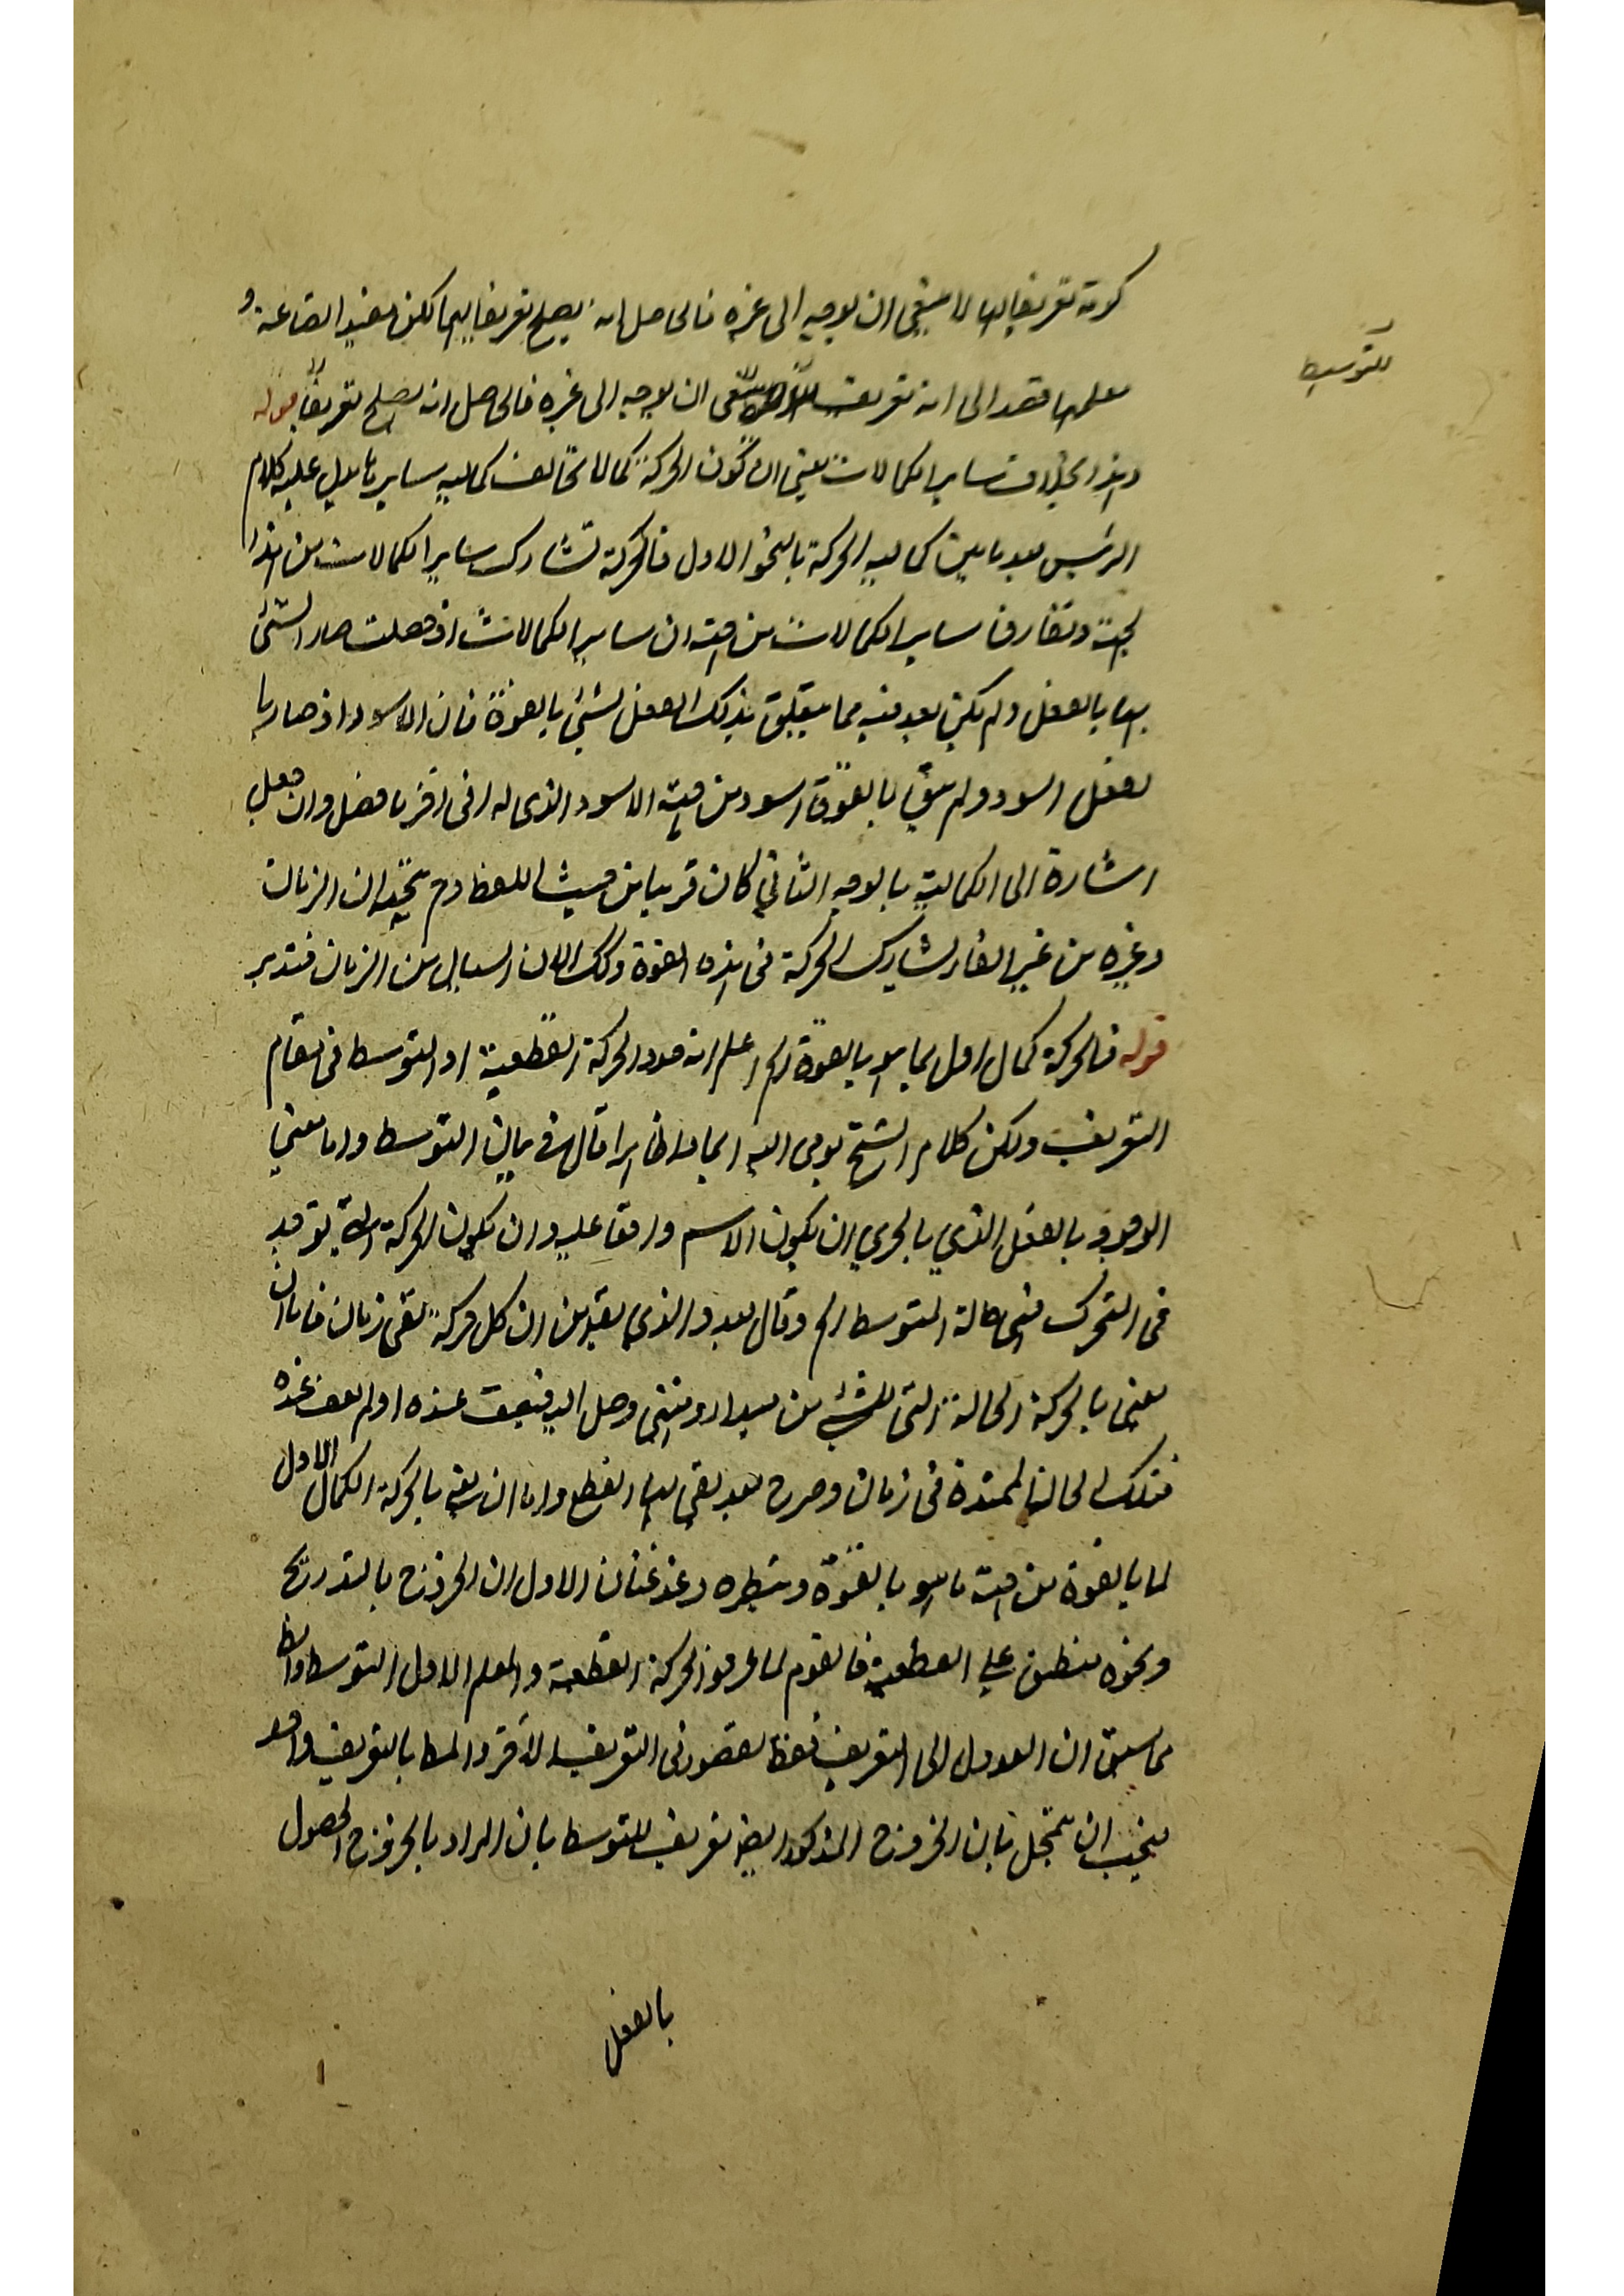 كونه تعريفا لها لا ينبغي ان يوجه الى غيره فالحاصل انه يصلح تعريفا لهما لكن مفيد الصناعة و
معلمها قصد الى انه تعريف ان يوجه الى غيره فالحاصل انه يصلح تعريفا قوله
للتوسط
وهذا بخلاف ساير الكمالات يعني ان كون الحركة كمالا تخالف كمالية سايرها يدل عليه كلام
الرئيس بعد ما بين كمالية الحركة بالنحو الاول فالحركة تشارك ساير الكمالات من هذا
الجهة وتفارق ساير الكمالات من جهة ان ساير الكمالات اذ حصلت صار الشئ
بها بالفعل ولم يكن بعد فيه مما يتعلق بذلك الفعل لشئ بالقوة فان الاسود اذ صار با
لفعل اسود ولم يبق بالقوة اسود من جهة الاسود الذي له اذ اخر ما فصل وان جعل
اشارة الى الكمالية بالوجه الثاني كان قريبا من حيث اللفظ وح يتجه ان الزمان
وغيره من غير القار يشارك الحركة في هذه القوة وكك الان السيال من الزمان فتدبر
قوله فالحركة كمال اول لما هو بالقوة الخ اعلم انه حدد الحركة القطعية او التوسط في مقام
التعريف ولكن كلام الشيخ يومى اليه ايماء ظاهرا قال في بيان التوسط واما معني
الموجود بالفعل الذي بالحري ان يكون الاسم واقعا عليه وان يكون الحركة التي توجد
في المتحرك فهي حالة المتوسط الخ وقال بعد والذي يقد من ان كل حركة لفي زمان فاما ان
يعني بالحركة الحالة التي للشئ من مبدا ومنتهى وصل اليه فيقف عنده او لم يقف عنده
فتلك الحالة الممتدة في زمان وصرح بعد بقى لها القطع واما ان يعني بالحركة الكمال الاول
لما بالقوة من جهة ما هو بالقوة وبنظره وعندغتان الاول ان الخروج بالتدريج
ونحوه ينطبق علي القطعية فالقوم لما عرفوا الحركة القطعية والمعلم الاول التوسط والظ
مما سبق ان العدول الى التعريف لقصور في التعريف الاخر والمط بالتعريف واحد
فيجب ان يتمحل بان الخروج المذكور ايضا تعريف للتوسط بان المراد بالخروج الحصول
بالفعل